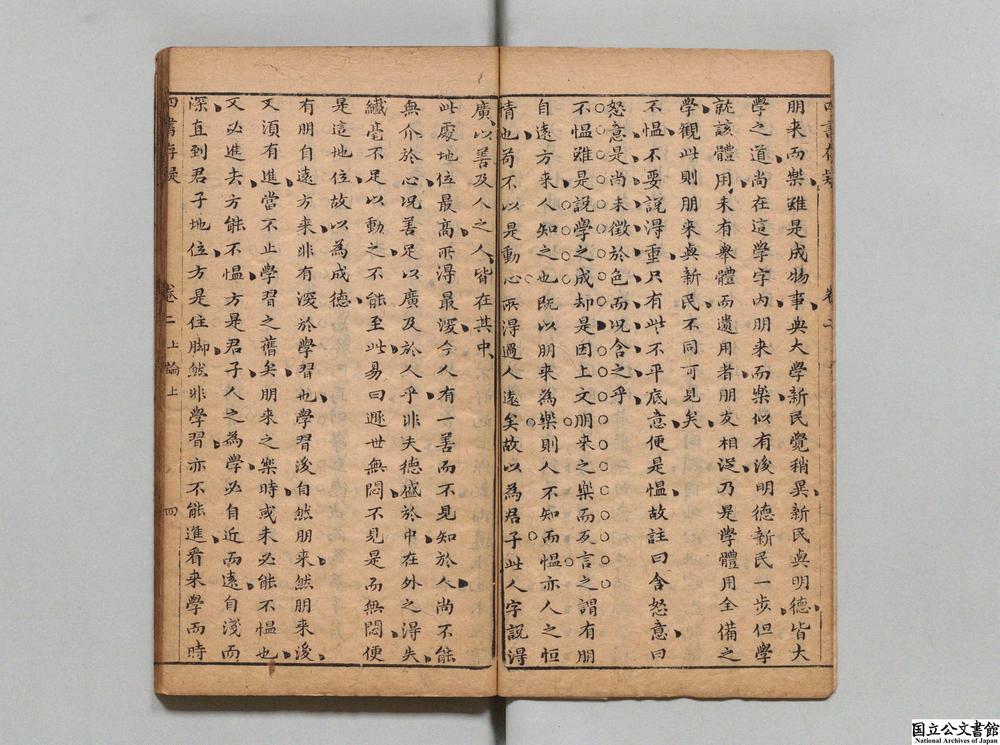 四書存疑 卷二
朋来而樂雖是成物事與大學新民覺稍異新民與明德皆大
學之道尚在這學字內朋来而樂似有後明德新民一步但學
就該體用未有舉體而遺用者朋友相從乃是學體用全備之
學觀此則朋来與新民不同可見矣
不愠不要說得重只有些不平底意便是愠故註曰含怒意曰
怒意是尚未徵於色而况含之乎
不愠雖是說學之成却是因上文朋来之樂而反言之謂有朋
自遠方来人知之也既以朋来為樂則人不知而愠亦人之恒
情也苟不以是動心所得過人遠矣故以為君子此人字說得
廣以善及人之人皆在其中
此處地位最高所得最深今人有一善而不見知於人尚不能
無介於心况善足以廣及於人乎非夫德盛於中在外之得失
纖毫不足以動之不能至此易曰遯世無悶不見是而無悶便
是這地位故以為成德
有朋自遠方来非有深於學習也學習後自然朋来然朋来後
又須有進當不止學習之舊矣朋来之樂時或未必能不愠也
又必進去方能不愠方是君子人之為學必自近而遠自淺而
深直到君子地位方是住脚然非學習亦不能進看来學而時
四書存疑 卷二 上論上 四
国立公文書館
National Archives of Japan